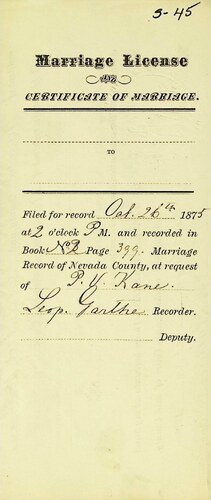 3-45
Marriage License
OR
CERTIFICATE OF MARRIAGE.
TO
Filed for record Oct. 26th 1875
at 2 o'clock P.M. and recorded in
Book No 2 Page 399. Marriage
Record of Nevada County, at request
of P. V. Kane.
Leop. Garthe Recorder.
Deputy.